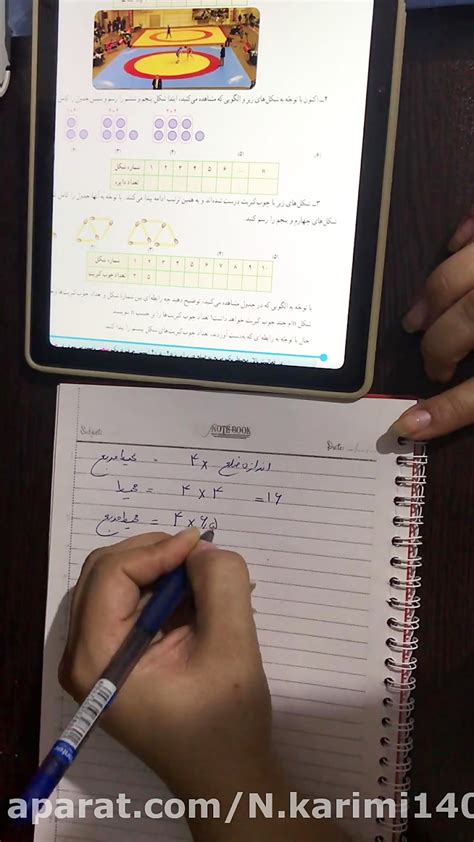 ۲ــ اکنون با توجّه به شکل‌های زیر و الگویی که مشاهده می‌کنید، ابتدا شکل پنجم و ششم را رسم و سپس جدول را کامل
(۲) (۳) (۴) (۵) (۶)
شماره شکل ۱ ۲ ۳ ۴ ۵ ۶ ... n
تعداد دایره
۳ــ شکل‌های زیر با چوب‌کبریت درست شده‌اند و به همین ترتیب ادامه پیدا می‌کنند. با توجّه به آنها جدول را کامل
شکل‌های چهارم و پنجم را رسم کنید.
(۴) (۵)
شماره شکل ۱ ۲ ۳ ۴ ۵ ۶ ۷ ۸ ۹ ۱۰
تعداد چوب کبریت ۳ ۵
با توجّه به الگویی که در جدول مشاهده می‌کنید، توضیح دهید چه رابطه‌ای بین شماره شکل و تعداد چوب کبریت‌ها
شکل nام چند چوب کبریت خواهد داشت؟ تعداد چوب‌کبریت‌ها را بر حسب n بنویسید.
حال با توجّه به رابطه‌ای که به‌دست آوردید، تعداد چوب‌کبریت‌های شکل بیستم را پیدا کنید.
Subject:
NOTE BOOK
Date:
اندازه ضلع × ۴ = محیط مربع
۴ × ۴ = ۱۶ = محیط
۴ × ۶٫۵ = محیط مربع
aparat.com/N.karimi140